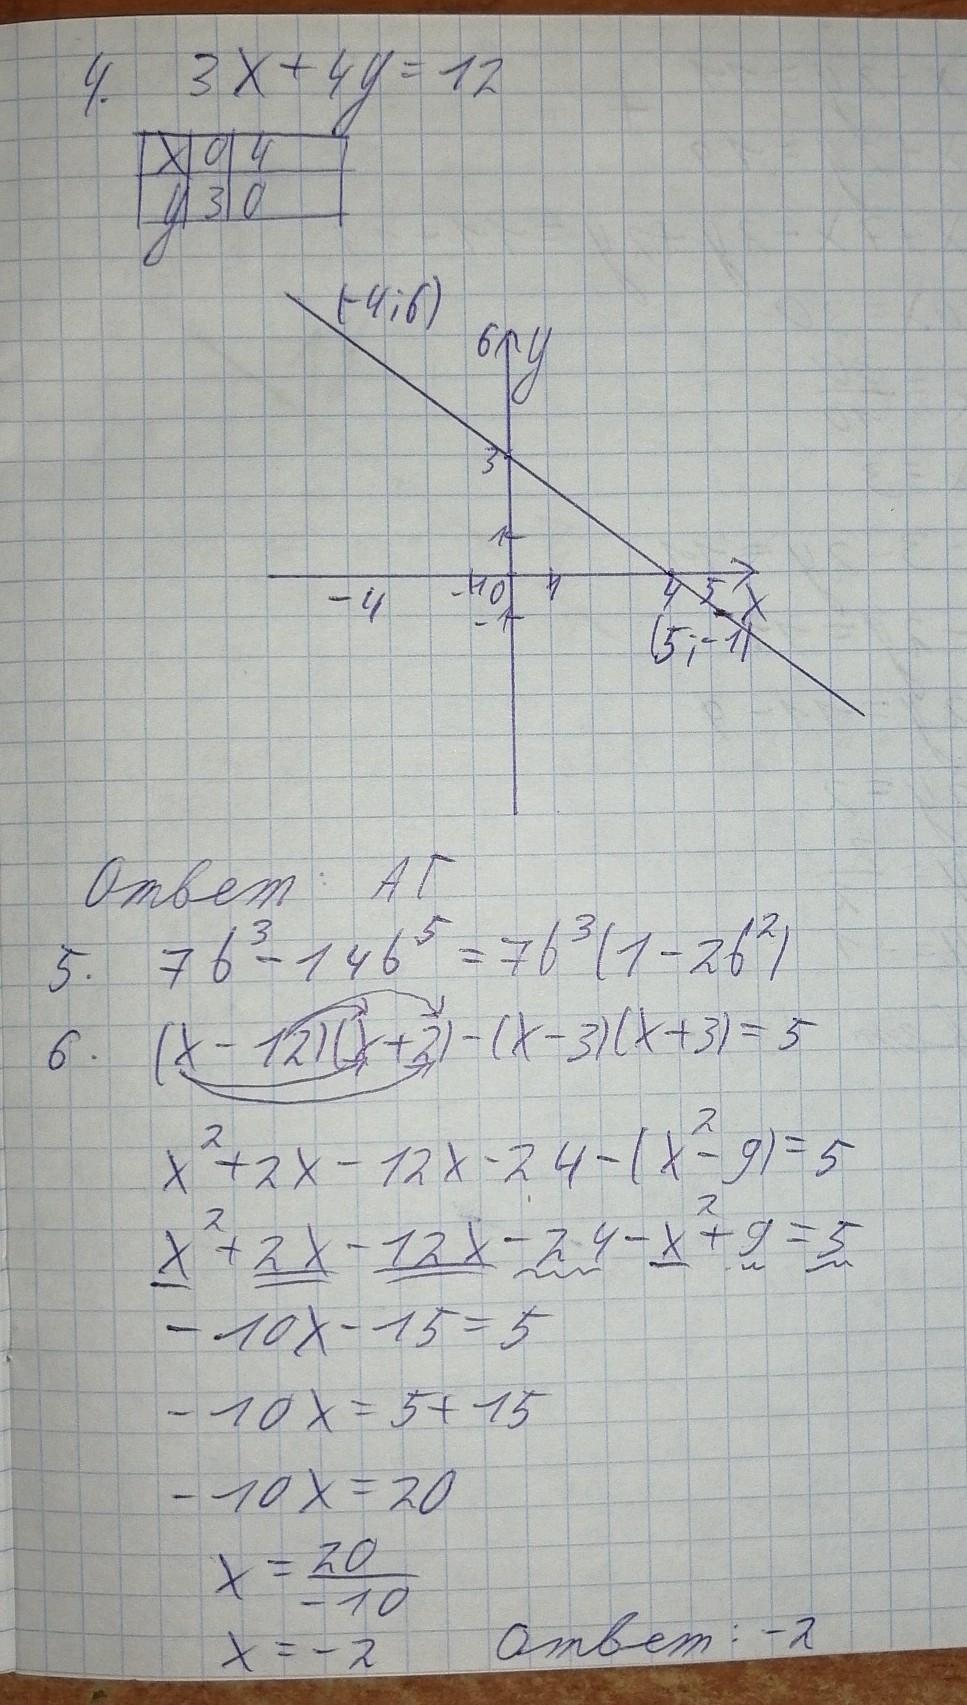 4. 3x+4y=12
x 0 4
y 3 0
(-4;6)
6 y
3
1
-4 -1 0 1 4 5 x
-1
(5;-1)
Ответ: АГ
5. 7b³-14b⁵=7b³(1-2b²)
6. (x-12)(x+2)-(x-3)(x+3)=5
x²+2x-12x-24-(x²-9)=5
x²+2x-12x-24-x²+9=5
-10x-15=5
-10x=5+15
-10x=20
x=20/-10
x=-2 Ответ: -2